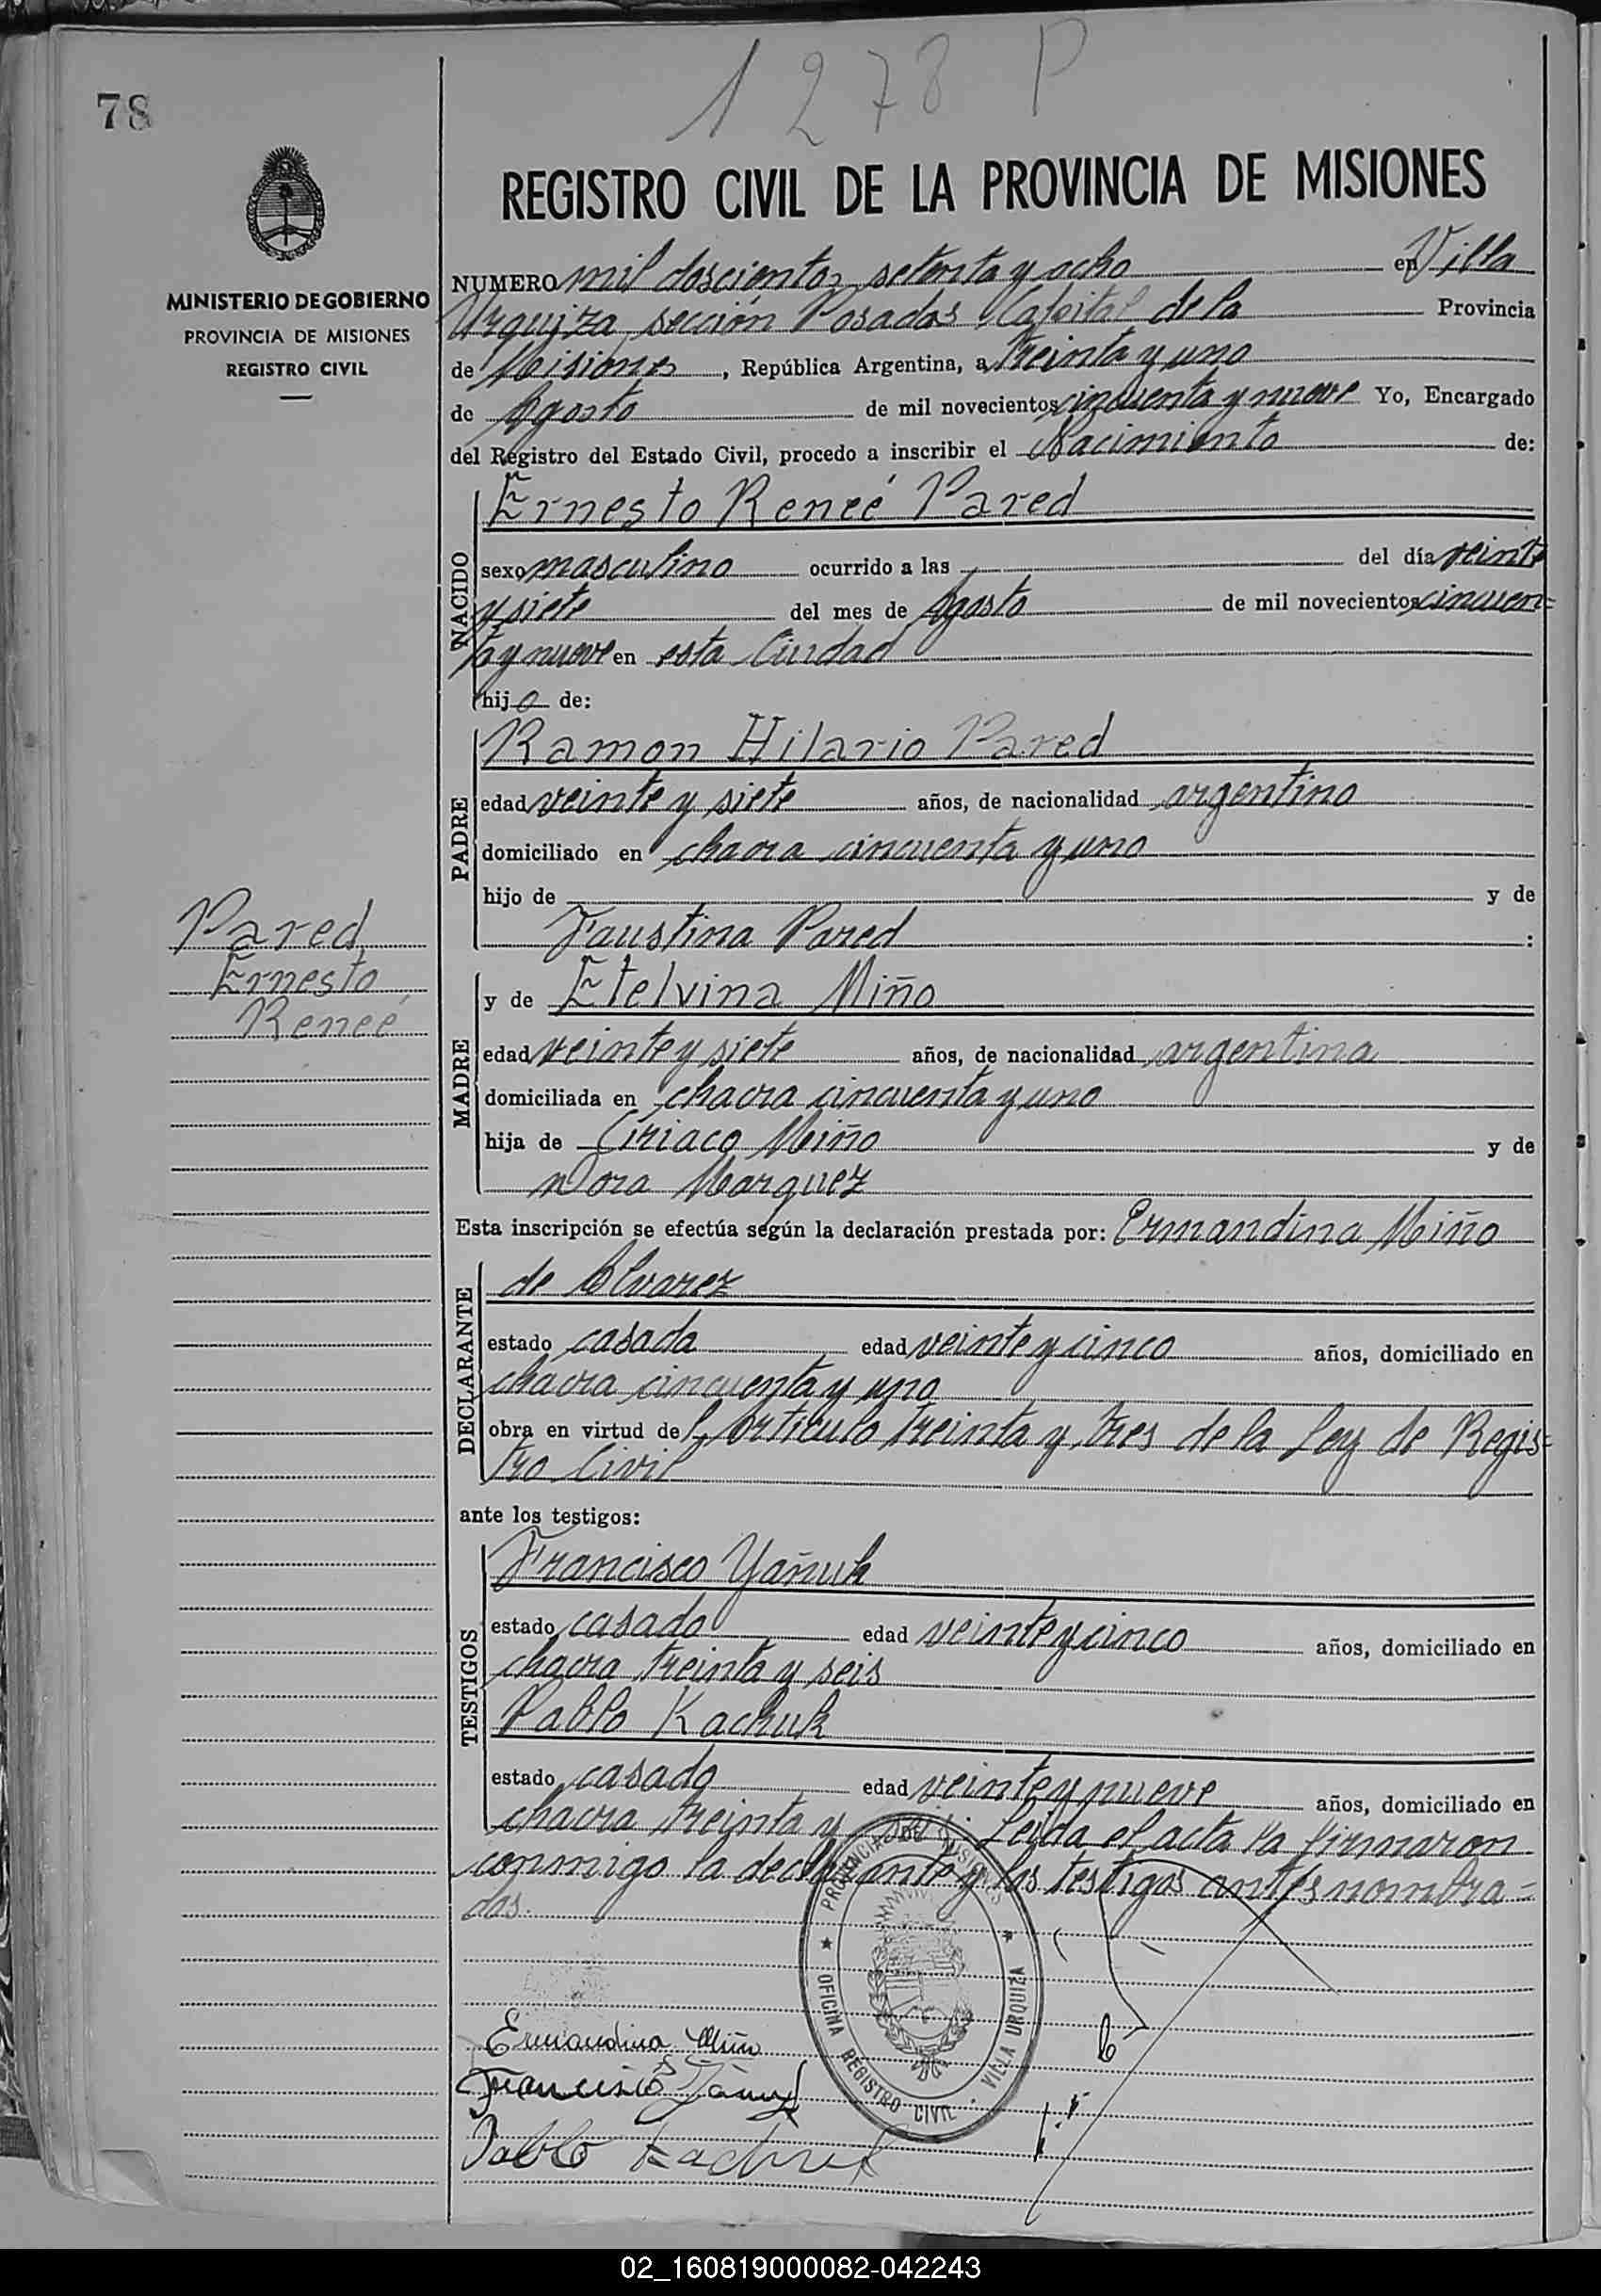 1278 P
78
REGISTRO CIVIL DE LA PROVINCIA DE MISIONES
MINISTERIO DE GOBIERNO
PROVINCIA DE MISIONES
REGISTRO CIVIL
NUMERO mil doscientos setenta y ocho en Villa
Urquiza sección Posadas Capital de la Provincia
de Misiones, República Argentina, a treinta y uno
de Agosto de mil novecientos cincuenta y nueve Yo, Encargado
del Registro del Estado Civil, procedo a inscribir el Nacimiento de:
NACIDO
Ernesto Reneé Pared
sexo masculino ocurrido a las del día veinte
y siete del mes de Agosto de mil novecientos cincuen=
ta y nueve en esta Ciudad
hijo de:
PADRE
Ramon Hilario Pared
edad veinte y siete años, de nacionalidad argentino
domiciliado en chacra cincuenta y uno
hijo de y de
Faustina Pared :
Pared
Ernesto
Reneé
MADRE
y de Etelvina Miño
edad veinte y siete años, de nacionalidad argentina
domiciliada en chacra cincuenta y uno
hija de Ciriaco Miño y de
Dora Marquez
Esta inscripción se efectúa según la declaración prestada por: Ermandina Miño
DECLARANTE
de Alvarez
estado casada edad veinte y cinco años, domiciliado en
chacra cincuenta y uno
obra en virtud del Articulo treinta y tres de la Ley de Regis=
tro Civil
ante los testigos:
TESTIGOS
Francisco Yañuk
estado casado edad veinte y cinco años, domiciliado en
chacra treinta y seis
Pablo Kachuk
estado casado edad veinte y nueve años, domiciliado en
chacra treinta y seis. Leida el acta la firmaron
conmigo la declarante y los testigos antes nombra=
dos.
PROVINCIA DE MISIONES
OFICINA REGISTRO CIVIL · VILLA URQUIZA
Ermandina Miño
Francisco Yañuk
Pablo Kachuk
02_160819000082-042243